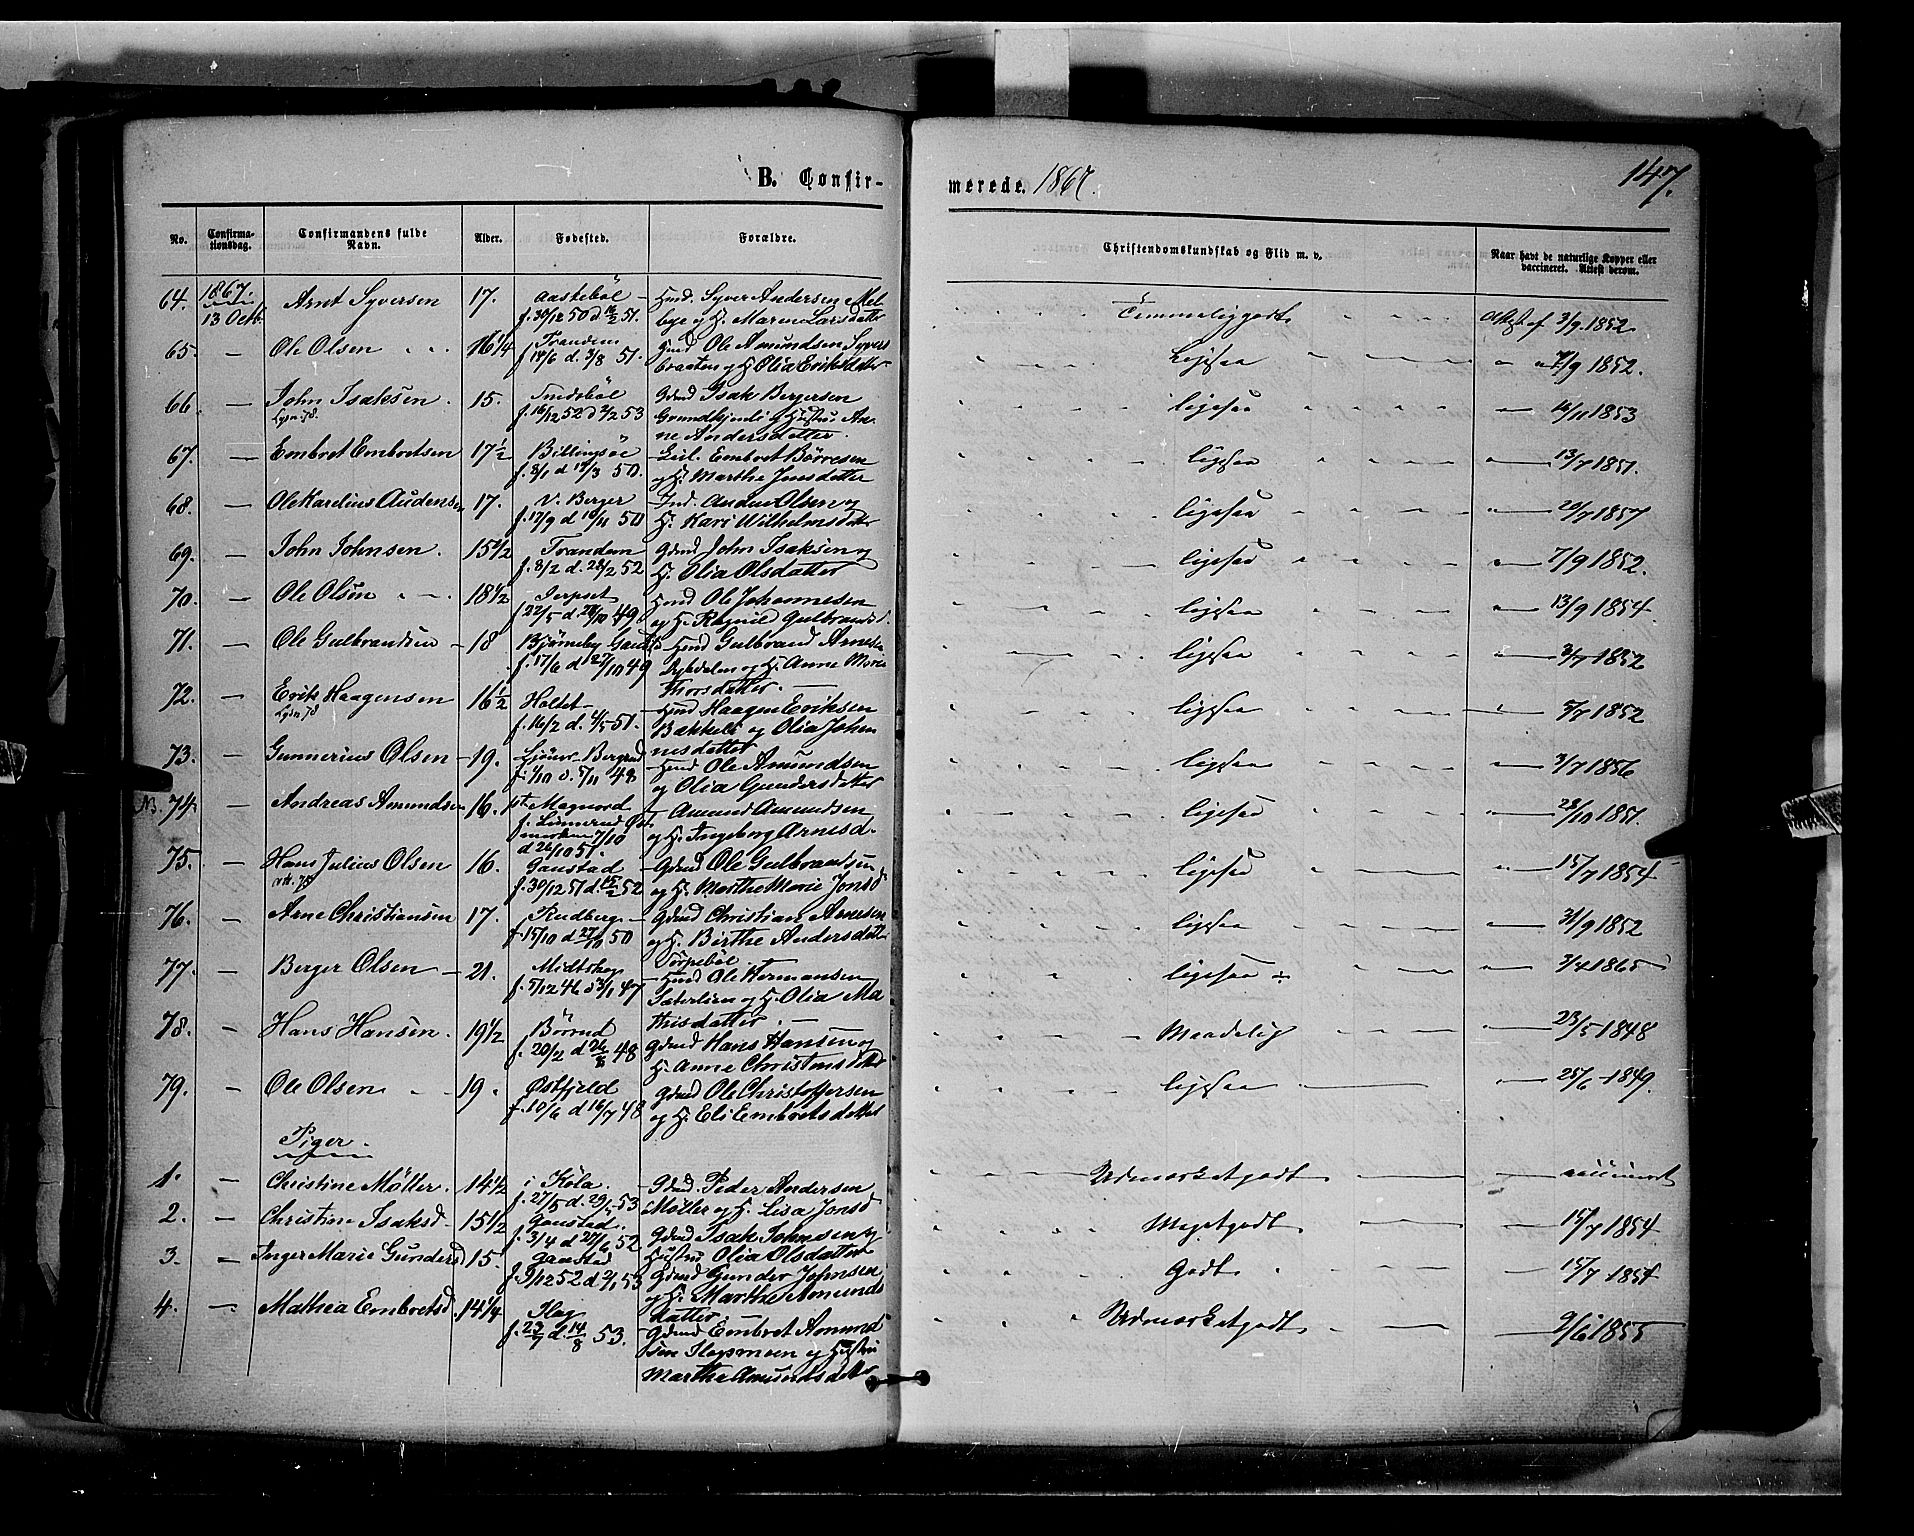 B. Confir-
merede. 1867.
147.
No.
Confirma-
tionsdag.
Confirmandens fulde
Navn.
Alder.
Fødested.
Forældre.
Christendomskundskab og Flid m. v.
Naar havt de naturlige Kopper eller
vaccineret. Attest derom.
64. 1867. 13 Octb. Arnt Syversen 17. Aastebøl f. 30/12 50 d 16/2 51. Hmd. Syver Andersen Mel-
bye og H. Marin Larsdatter Temmeliggodt Attest af 3/9. 1852.
65. — Ole Olsen 16 1/4 Trandem f 14/6 d. 3/8 51. Gmd Ole Amundsen Syvers
braaten og H Olia Eriksdatter Ligesaa 7/9 1852.
66 — John Isaksen. 15. f. 16/12 52 d 2/2 53 Gdmd Isak Bergersen
og Hustru An-
ne Andersdatter. ligesaa 14/11 1853
67. — Embret Embretsen 17 1/2 f. 8/1 d 17/3 50. Embret Børresen
og H. Marthe Jonsdatter ligesaa 13/7 1851.
68. — Ole Karelius Audensen 17. V. Berger f. 17/9 d 10/11 50 Ind. Auden Olsen og
H. Kari Wilhelmsdatter ligesaa 20/7 1857
69. — John Johnsen. 15 1/2 Trandem f. 8/2 d. 28/2 52 Gdmd John Isaksen og
H. Olia Olsdatter ligesaa 7/9 1852.
70. — Ole Olsen 18 1/2 Jerpset f. 22/5 d. 28/10 49 Hmd Ole Johannesen
og H. Ragnild Gulbrandsd. ligesaa 13/9 1854.
71. — Ole Gulbrandsen 18 Bjørneby f. 17/6 d 27/10 49 Hmd Gulbrand Arnesen
Dybdalen og H. Anne Marie
Thorsdatter. ligesaa 3/7 1852
72. — Erik Haagensen 16 1/2 Holtet f. 16/2 d. 4/5 51. Hmd Haagen Eriksen
Bakkeli og Olia Johan
nesdatter ligesaa 5/7 1852
73. — Gunnerius Olsen 19. f. 1/10 d. 5/11 48 Hmd Ole Amundsen
og Olia Gundersdatter ligesaa 3/7 1856
NB. 74. — Andreas Amundsen 16. Magnord
f. Linnerud Øst
marken 7/10
d 26/10 51. Amund Amundsen
og H. Ingeborg Arnesd. ligesaa 28/10 1851.
75. — Hans Julius Olsen 16. Gaustad f. 30/12 51 d. 15/2 52 Gdmd Ole Gulbrandsen
og H. Marthe Marie Jonsd ligesaa 15/7 1854
76. — Arne Christiansen 17. Rudberg f 15/10 d 27/10 50 Gdmd Christian Arnesen
og H. Birthe Andersdatter ligesaa 3/9 1852
77. — Berger Olsen 21. Midtskog f. 5/12 46 d 3/1 47 Torpebøl
Hmd Ole Hermansen
Sæterlien og H. Olia Ma
thisdatter. ligesaa 3/4 1865
78. — Hans Hansen. 19 1/2 Børrud f. 20/2 d 26/8 48 Gdmd Hans Hansen og
H. Anne Christensdatter Maadelig 23/5 1848
79. — Ole Olsen 19. Østfjeld f. 10/6 d 16/7 48 Gdmd Ole Christoffersen
og H. Eli Embretsdatter ligesaa 25/6 1849.
Piger.
1. — Christine Möller. 14 1/2 i Köla. f. 27/5 d. 29/5 53 Gdmd. Peder Andersen
Möller og H. Lisa Jonsd Udmærketgodt
2. — Christine Isaksd. 15 1/2 Gaustad. f. 3/4 d 27/6 52 Gdmd Isak Johnsen og
Hustru Olia Olsdatter Megetgodt 15/7 1854.
3. — Inger Marie Gundersd 15. Gaustad f. 9/12 52 d 2/1 53 Gdmd Gunder Johnsen
og H. Marthe Amunds
datter Godt 15/7 1854
4. — Mathea Embretsd. 14 1/4 Flog f. 23/7 d. 14/8 53. Gdmd Embret Amund
sen Flogsmoen og Hustru
Marthe Amundsdatter Udmærketgodt 9/6 1855